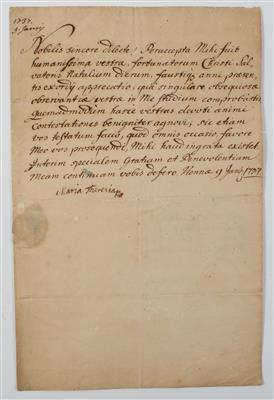 1737.
9 Januarij
Nobilis sincere dilecte! Peraccepta Mihi fuit
humanissima vestra, fortunatorum Christi Sal-
vatoris Natalium dierum, faustique anni praesen-
tis exordij apprecatio, quâ singulare obsequiosa
observantia vestra in Me studium comprobastis.
Quemadmodum hasce vestras devoti animi
Contestationes benignitèr agnovi; sic etiam
vos testatum facio, quod omnis occasio, favore
Meo vos prosequendi, Mihi haud ingrata existet.
Interim specialem Gratiam et Benevolentiam
Meam continuam vobis defero. Vienna 9 Janij 1737
Maria Theresia